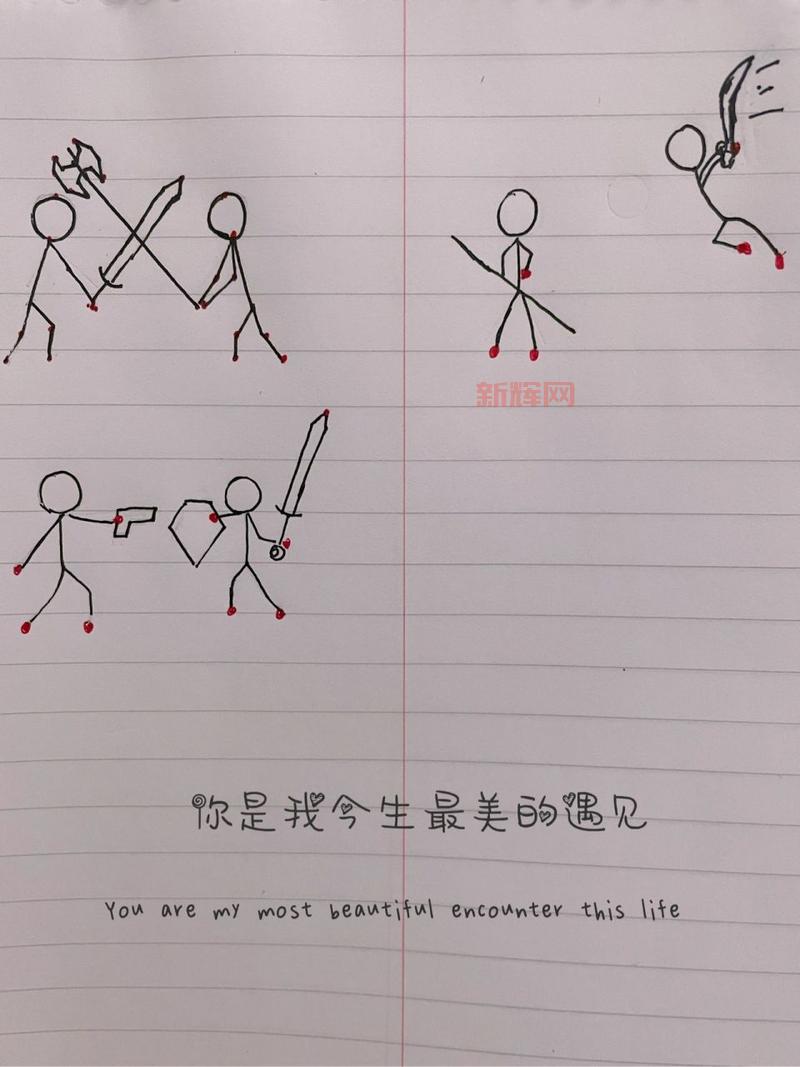 新辉网
你是我今生最美的遇见
You are my most beautiful encounter this life